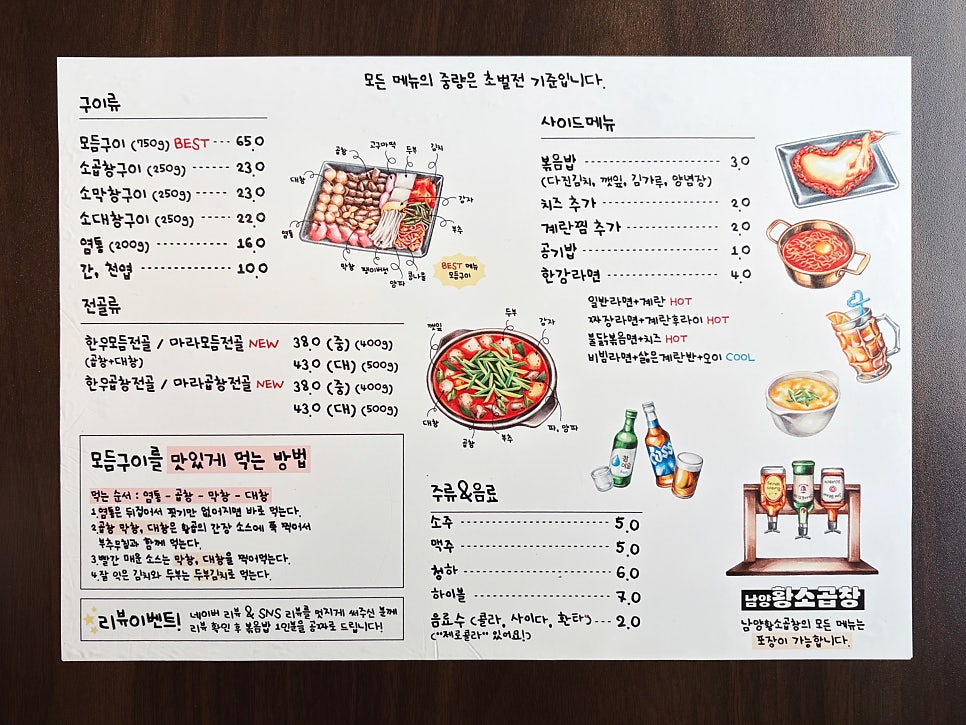 모든 메뉴의 중량은 초벌전 기준입니다.
구이류
모듬구이 (750g) BEST --- 65.0
소곱창구이 (250g) ------ 23.0
소막창구이 (250g) ------ 23.0
소대창구이 (250g) ------ 22.0
염통 (200g) ------------ 16.0
간, 천엽 --------------- 10.0
곱창
고구마떡
두부
김치
대창
감자
염통
부추
막창
팽이버섯
양파
콩나물
BEST 메뉴
모듬구이
전골류
한우모듬전골 / 마라모듬전골 NEW 38.0 (중) (400g)
(곱창+대창) 43.0 (대) (500g)
한우곱창전골 / 마라곱창전골 NEW 38.0 (중) (400g)
43.0 (대) (500g)
깻잎
두부
감자
대창
곱창
부추
파, 양파
모듬구이를 맛있게 먹는 방법
먹는 순서 : 염통 - 곱창 - 막창 - 대창
1.염통은 뒤집어서 핏기만 없어지면 바로 먹는다.
2.곱창 막창, 대창은 황곱의 간장 소스에 푹 찍어서
부추무침과 함께 먹는다.
3.빨간 매운 소스는 막창, 대창을 찍어먹는다.
4.잘 익은 김치와 두부는 두부김치로 먹는다.
리뷰이벤트!
네이버 리뷰 & SNS 리뷰를 멋지게 써주신 분께
리뷰 확인 후 볶음밥 1인분을 공짜로 드립니다!
사이드메뉴
볶음밥 ---------------- 3.0
(다진김치, 깻잎, 김가루, 양념장)
치즈 추가 -------------- 2.0
계란찜 추가 ------------ 2.0
공기밥 ---------------- 1.0
한강라면 -------------- 4.0
일반라면+계란 HOT
짜장라면+계란후라이 HOT
불닭볶음면+치즈 HOT
비빔라면+삶은계란반+오이 COOL
주류&음료
소주 ------------------ 5.0
맥주 ------------------ 5.0
청하 ------------------ 6.0
하이볼 ---------------- 7.0
음료수 (콜라, 사이다, 환타)--- 2.0
("제로콜라" 있어요!)
남양황소곱창
남양황소곱창의 모든 메뉴는
포장이 가능합니다.